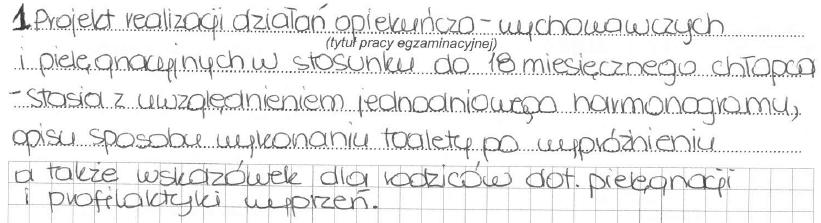 1. Projekt realizacji działań opiekuńczo-wychowawczych
(tytuł pracy egzaminacyjnej)
i pielęgnacyjnych w stosunku do 18 miesięcznego chłopca
-Stasia z uwzględnieniem jednodniowego harmonogramu,
opisu sposobu wykonaniu toalety po wypróżnieniu
a także wskazówek dla rodziców dot. pielęgnacji
i profilaktyki wyprzeń.